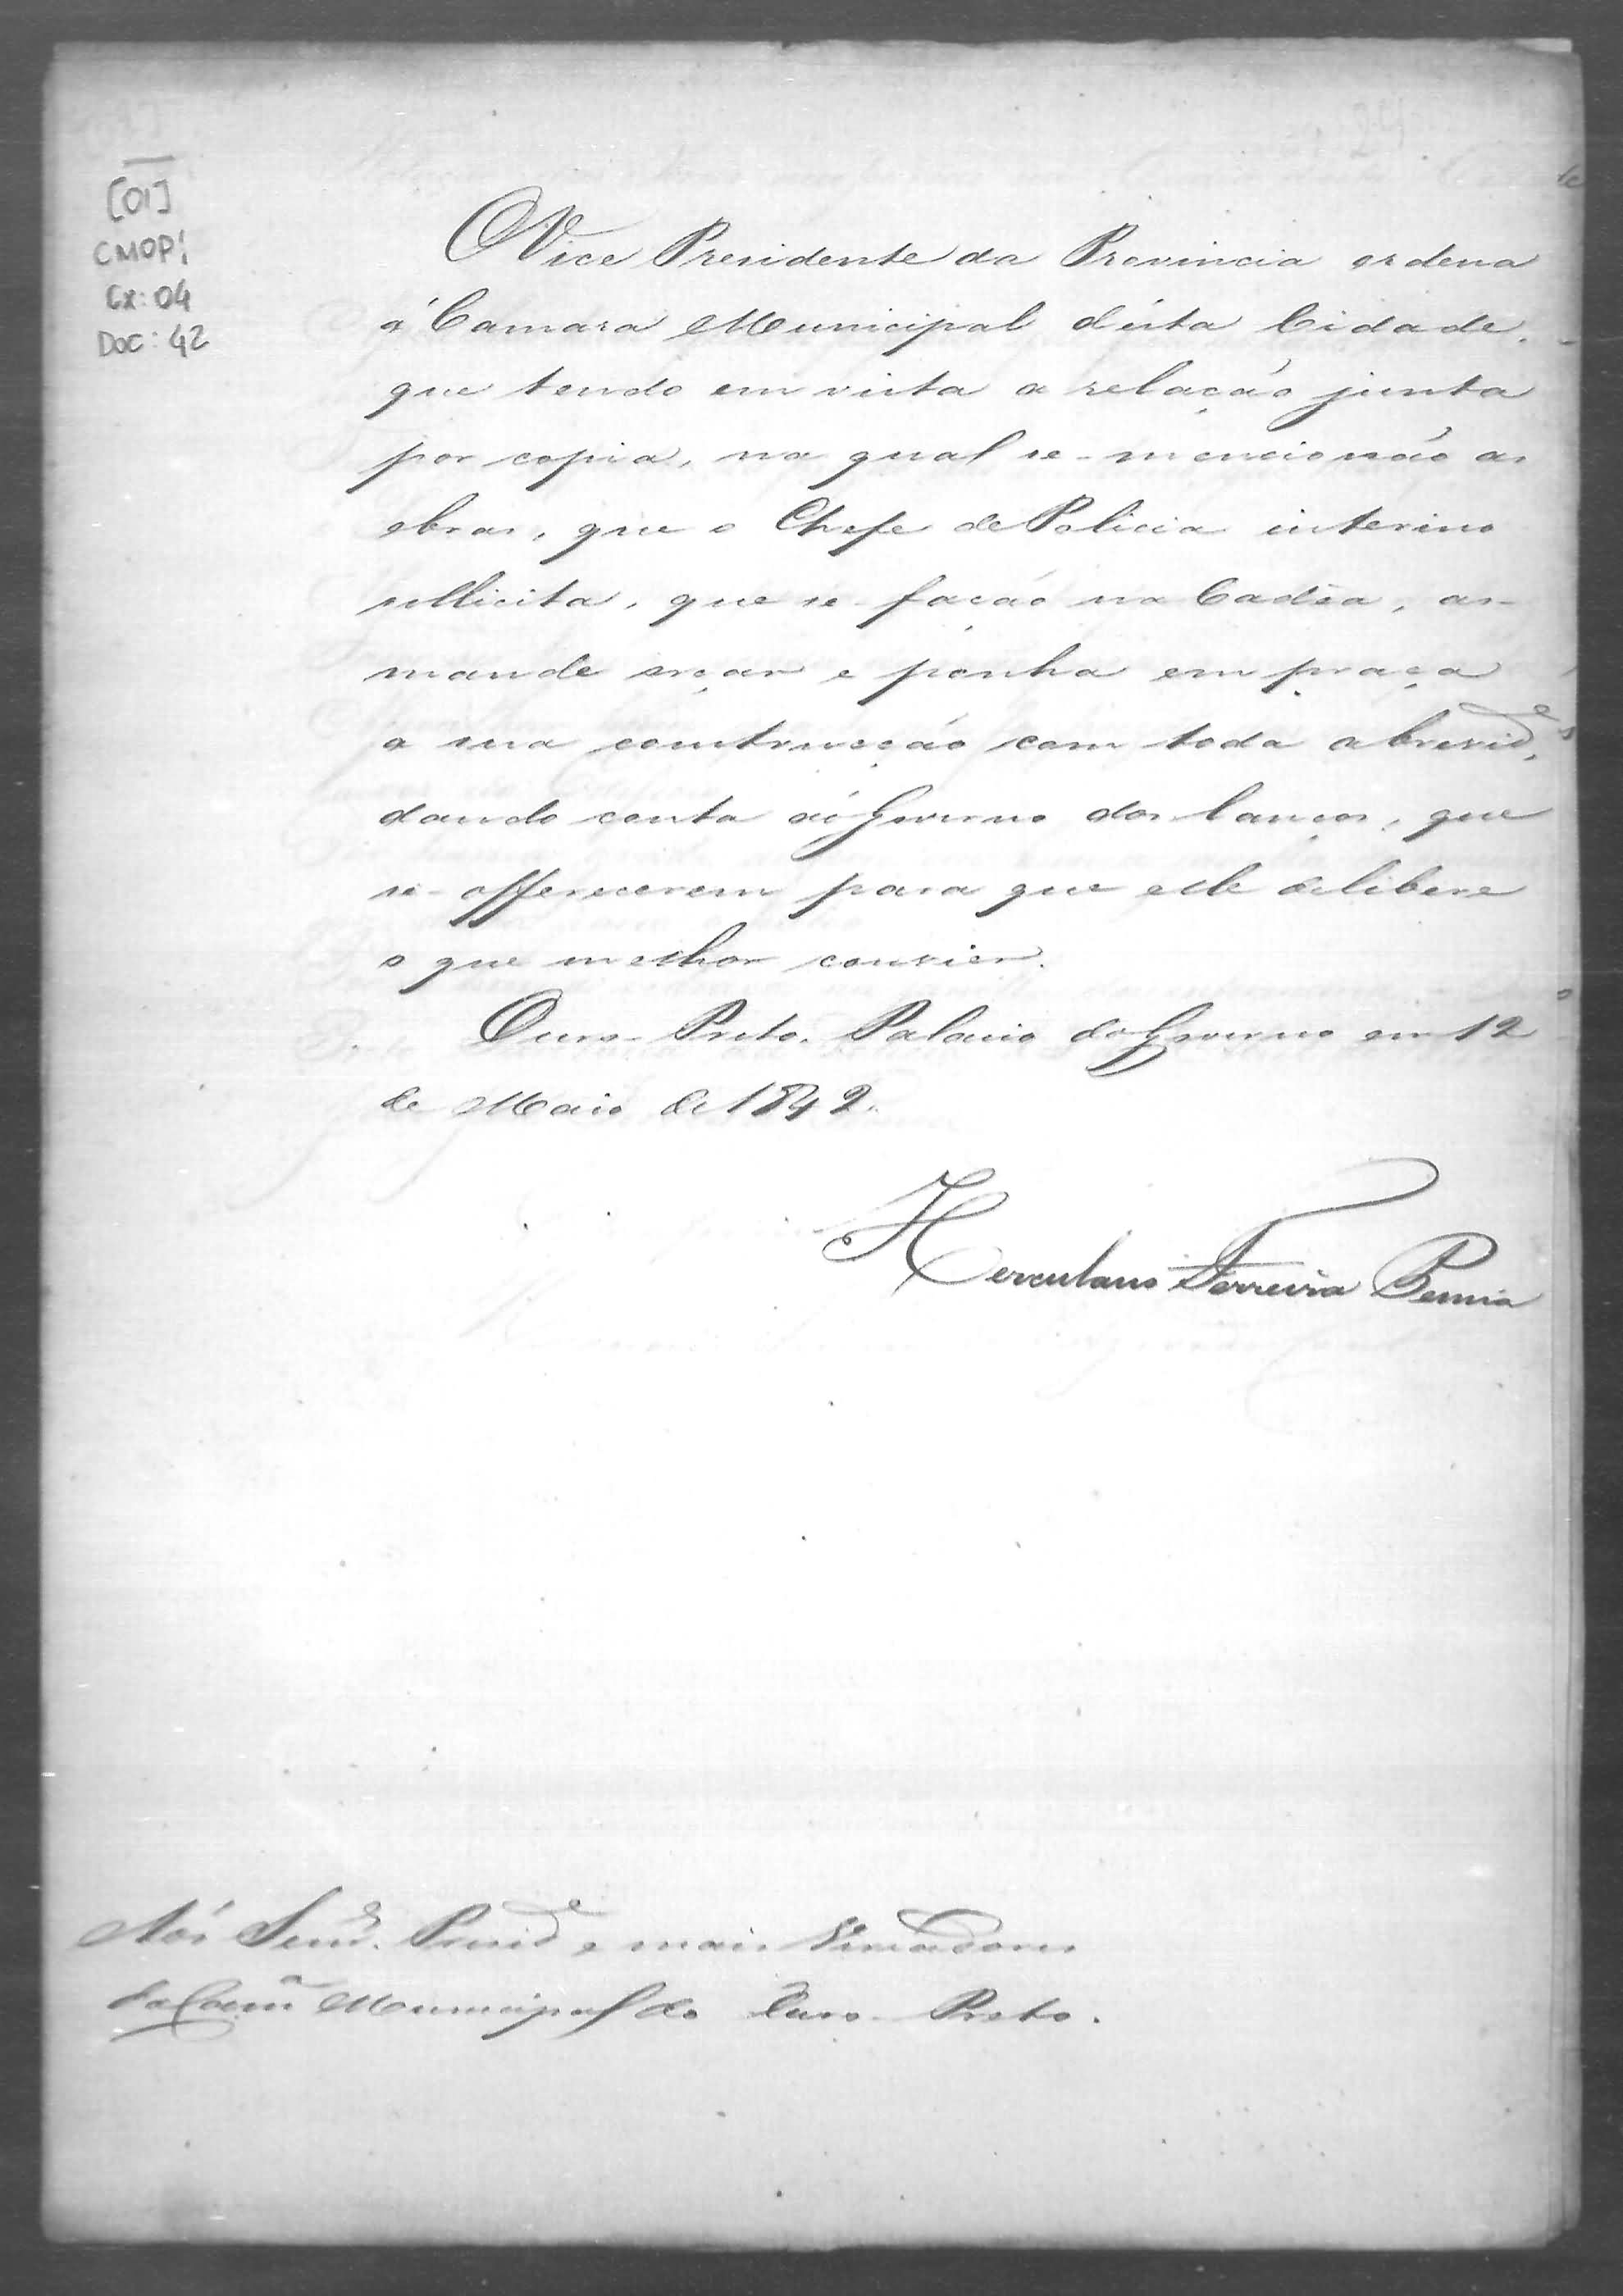 [01]
CMOP!
Cx: 04
Doc: 42
O Vice Presidente da Provincia ordena
á Camara Municipal désta Cidade,
que tendo em vista a relação junta
por copia, na qual se-mencionão as
obras, que o Chefe de Policia interino
sollicita, que se-fação na Cadêa, as-
mande orçar e ponha em praça
a sua construcção com toda a brevid.e,
dando conta aó Governo dos lanços, que
se-offerecerem para que elle delibere
o que melhor convier.
Ouro-Preto. Palacio do Governo em 12
de Maio de 1842.
Herculano Ferreira Penna
Presid.e e mais Vereadores
da Camª Municipal do Ouro-Preto.